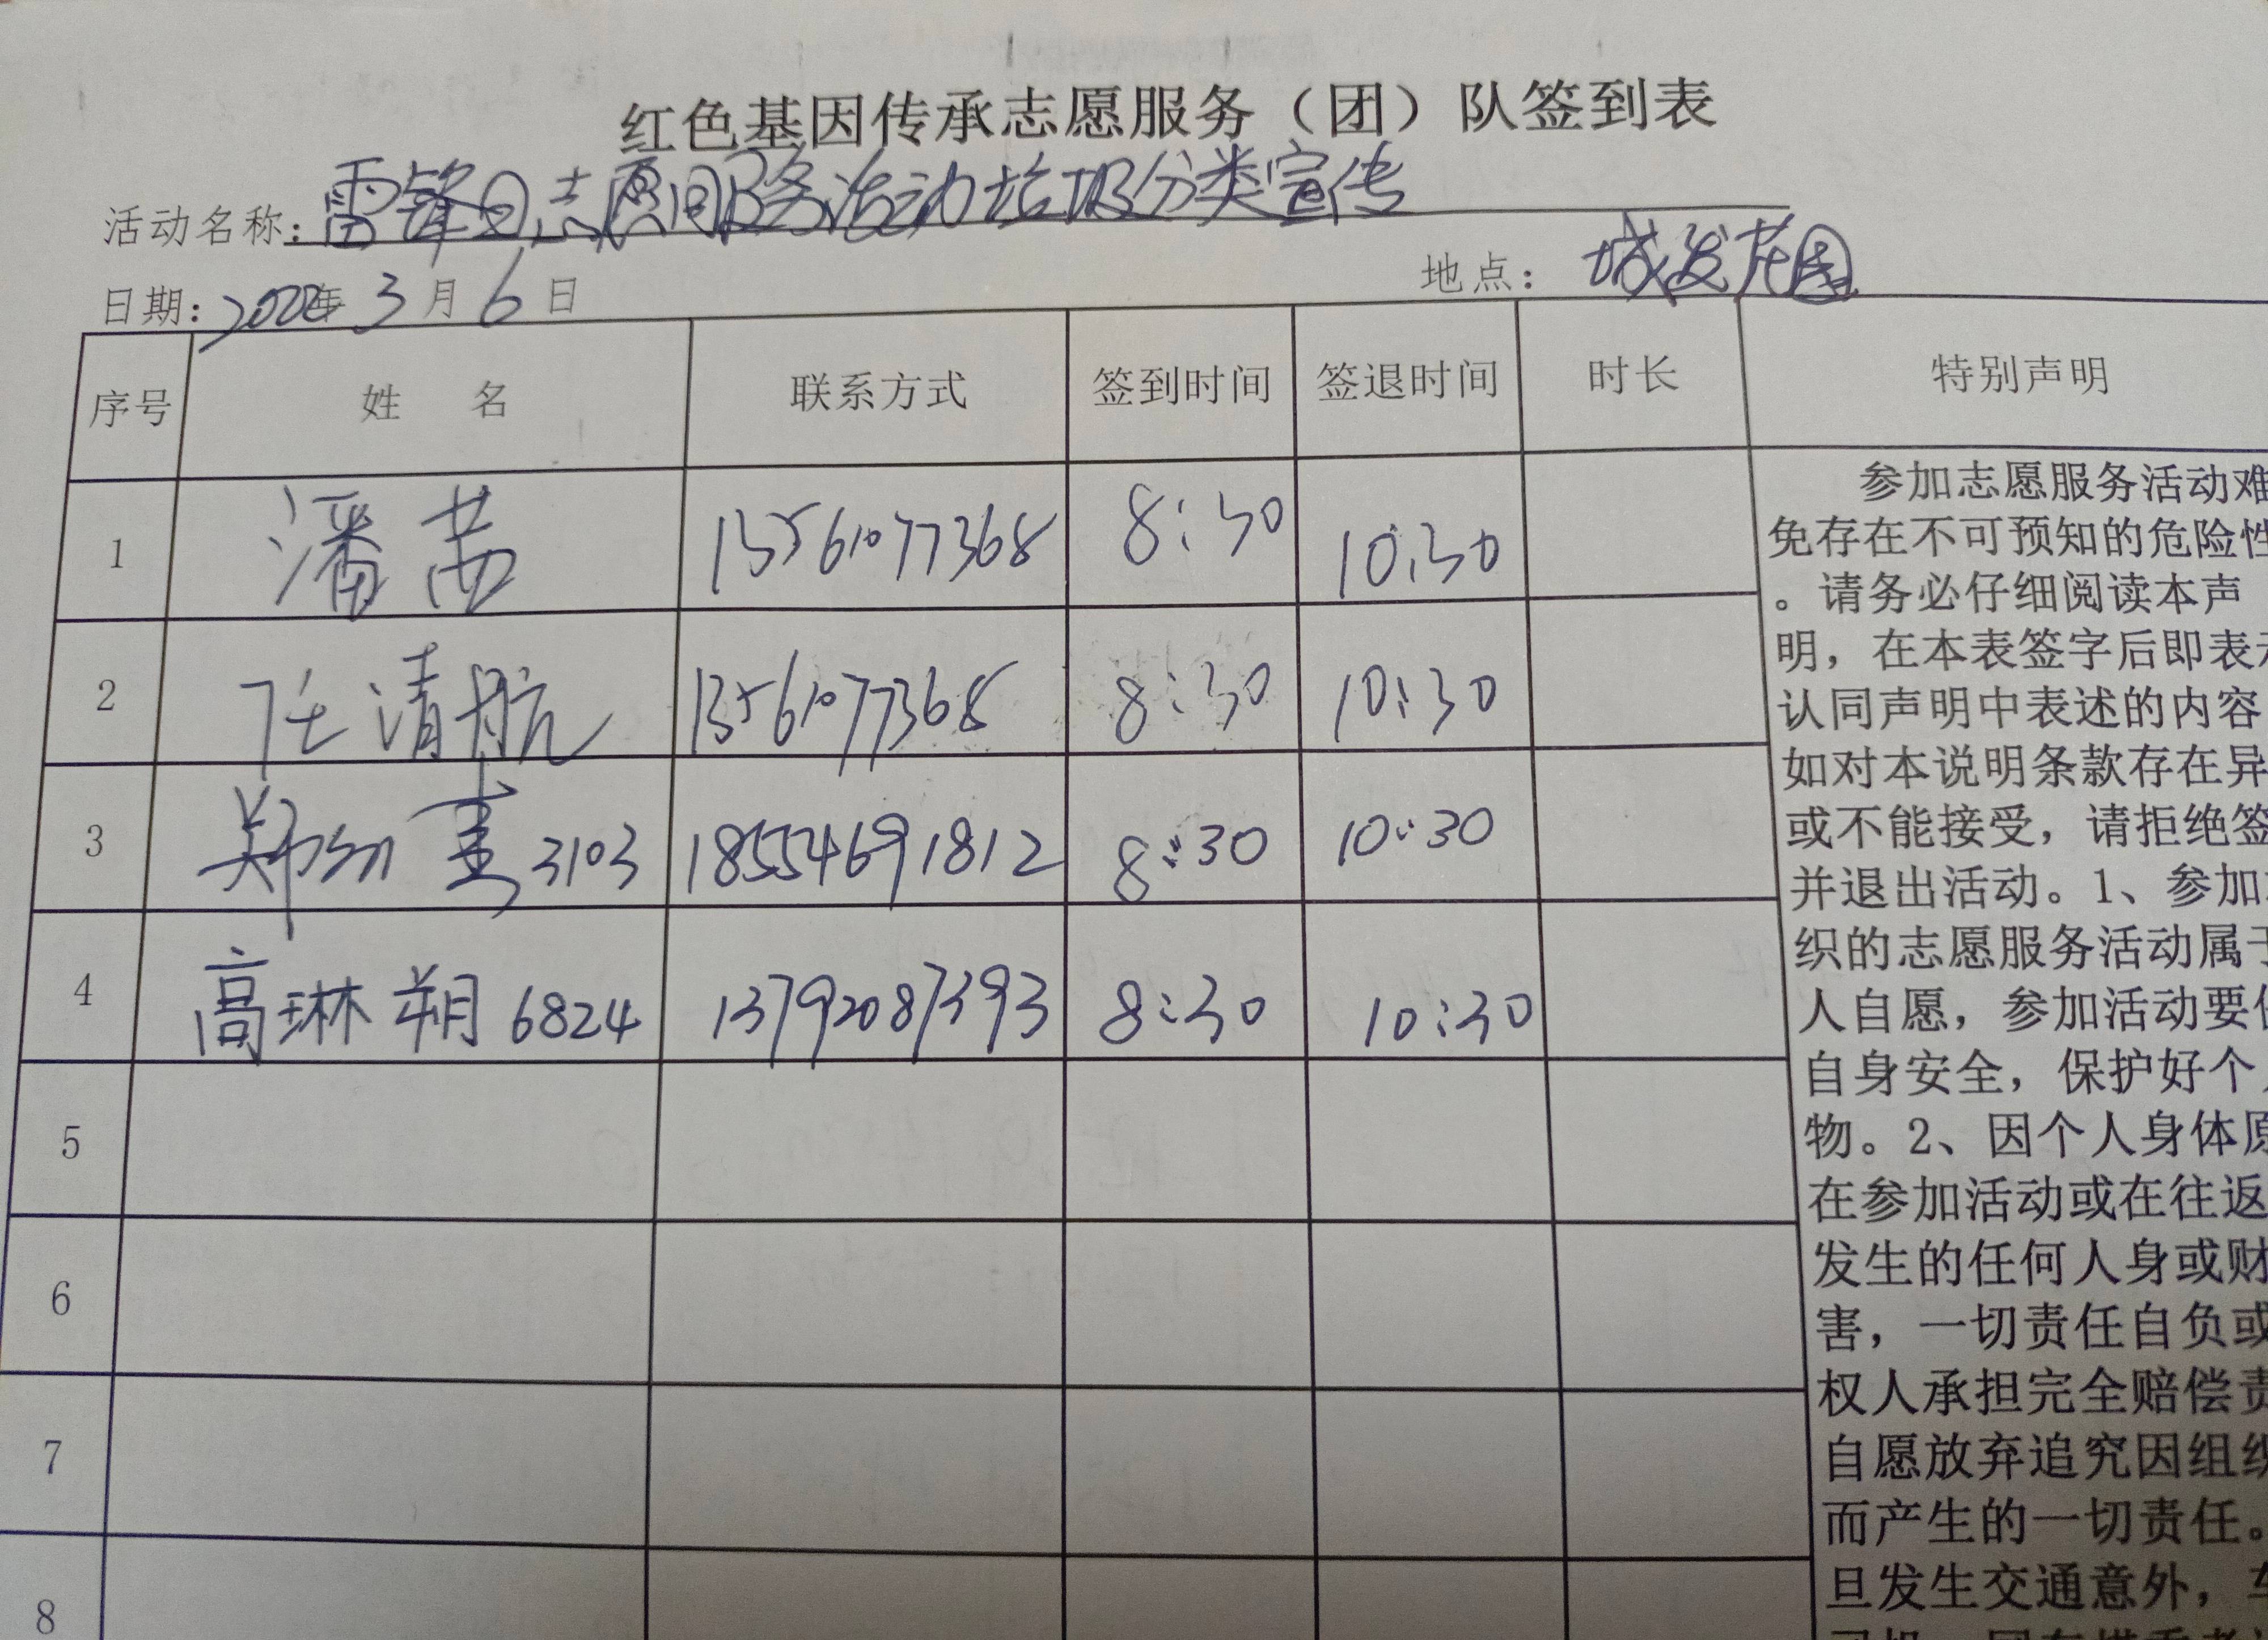 红色基因传承志愿服务（团）队签到表
活动名称：雷锋日志愿服务活动垃圾分类宣传
日期：2022年 3月 6日 地点：城发花园
序号 姓 名 联系方式 签到时间 签退时间 时长 特别声明
1 潘茜 13561077368 8:30 10:30
2 任清航 13561077368 8:30 10:30
3 郑 3103 18554691812 8:30 10:30
4 高琳朔 6824 13792087393 8:30 10:30
5
6
7
8
参加志愿服务活动难
免存在不可预知的危险性
。请务必仔细阅读本声
明，在本表签字后即表示
认同声明中表述的内容
如对本说明条款存在异
或不能接受，请拒绝签
并退出活动。1、参加
织的志愿服务活动属于
人自愿，参加活动要
自身安全，保护好个
物。2、因个人身体原
在参加活动或在往返
发生的任何人身或财
害，一切责任自负或
权人承担完全赔偿责
自愿放弃追究因组织
而产生的一切责任。
旦发生交通意外，车